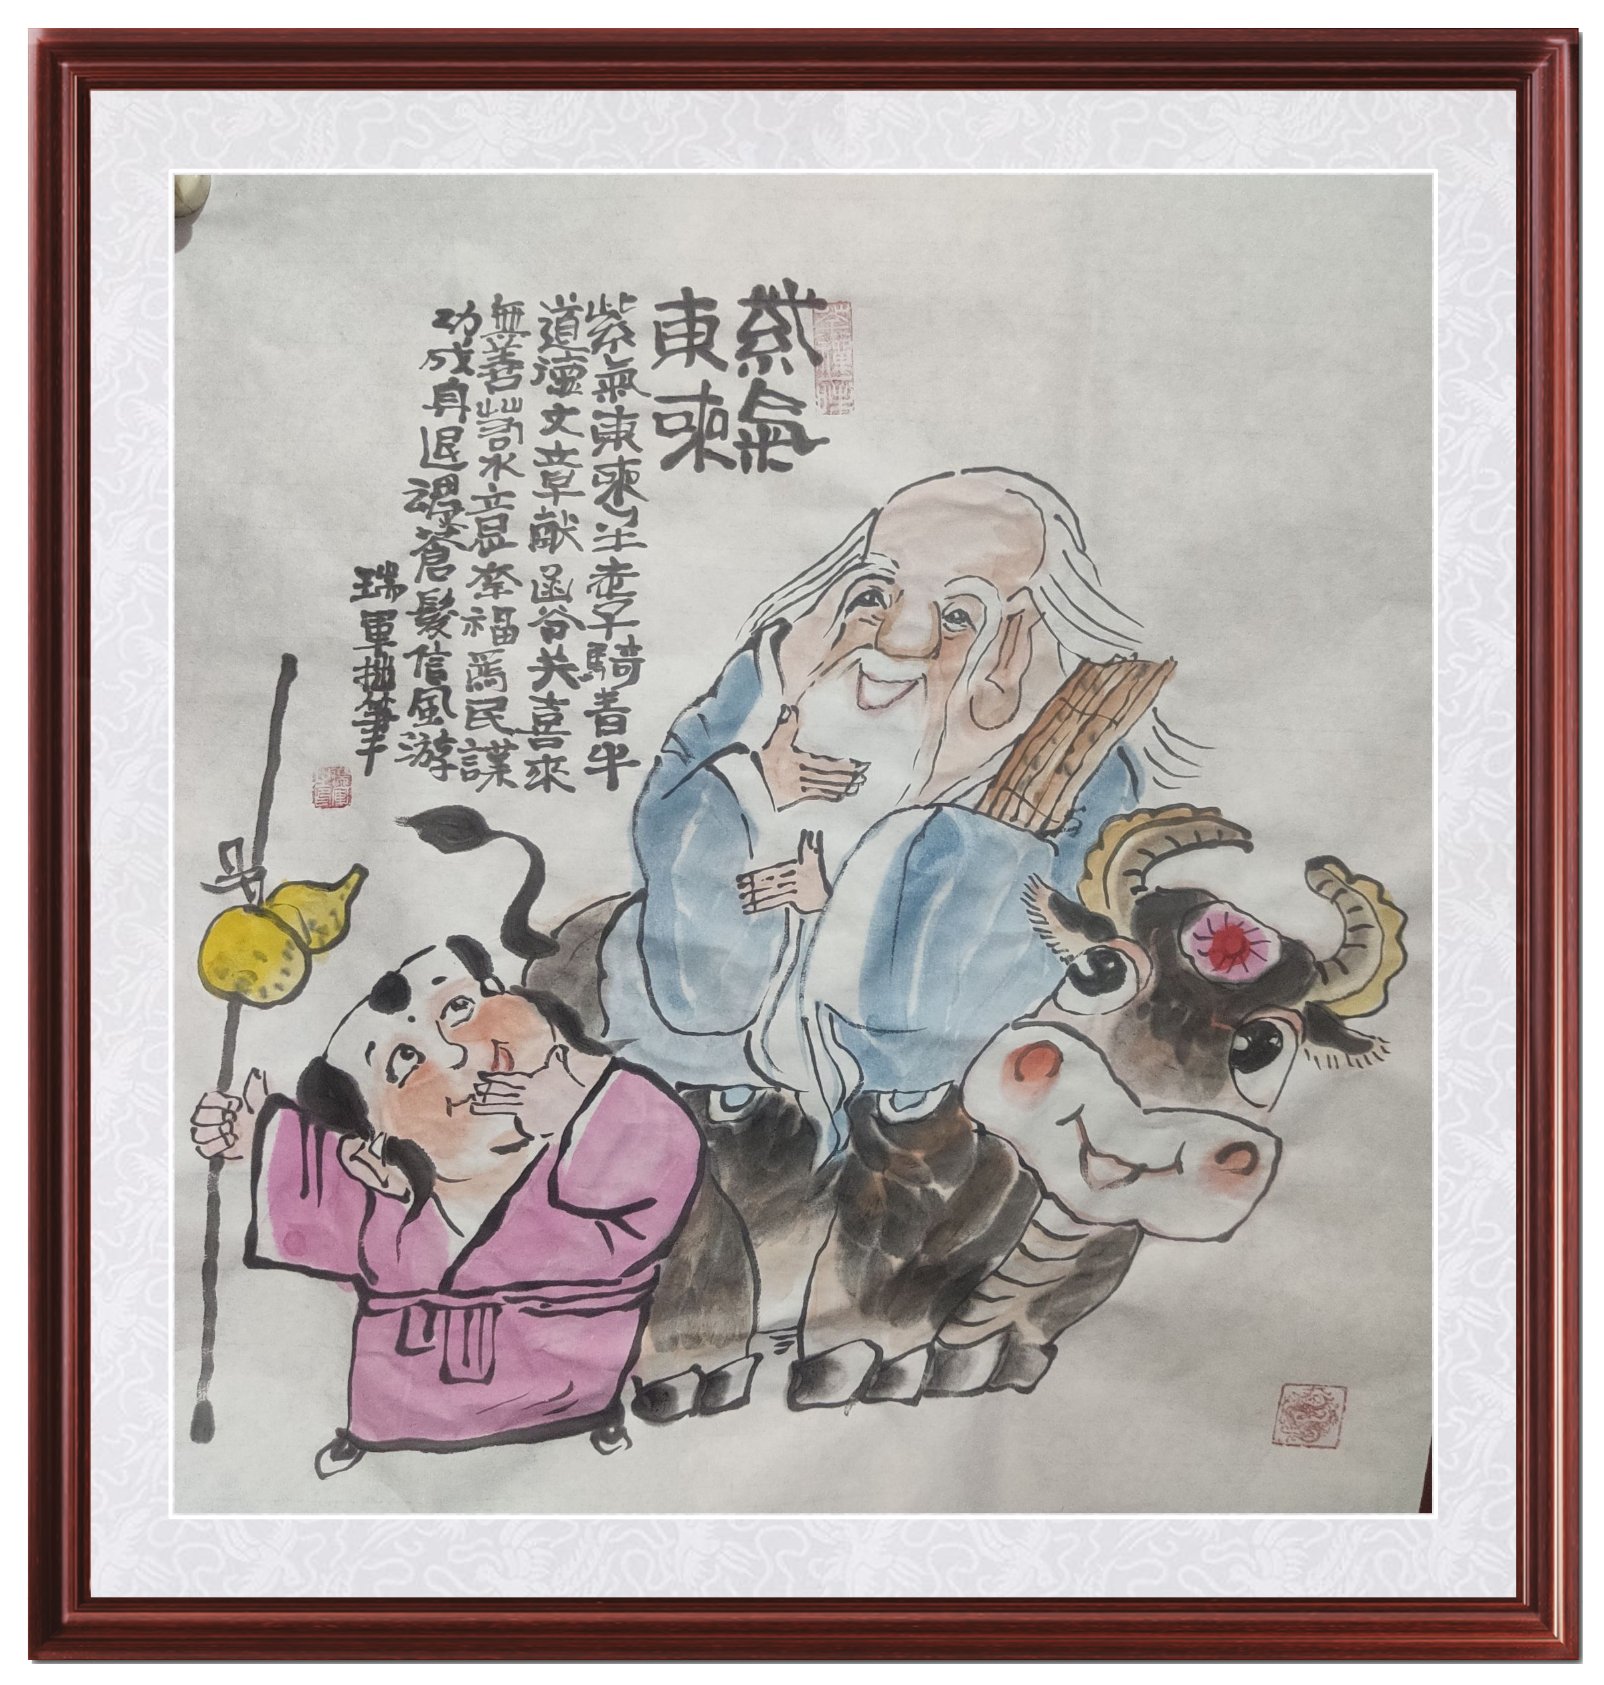 紫氣
東來
紫氣東來老子騎青牛
道德文章獻函谷关喜來
無善若水意福為民謀
功成身退蒼髮信風游
瑞軍拙筆